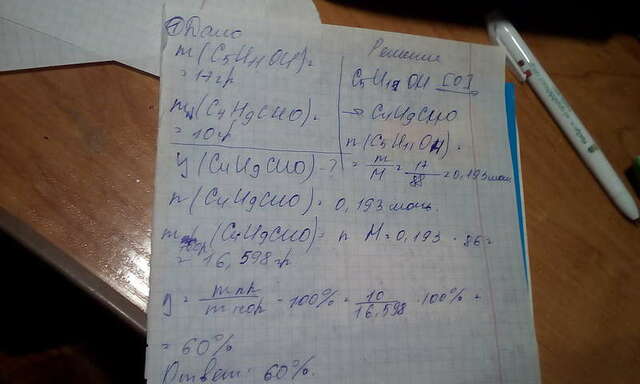 ① Дано
m(C5H11OH)=
= 17гр
m(C4H9CHO)=
= 10гр
η(C4H9CHO)-?
Решение
C5H11OH [O]
→ C4H9CHO
n(C5H11OH)=
= m/M = 17/88 = 0,193моль
n(C4H9CHO) = 0,193моль.
m теор(C4H9CHO)= n M = 0,193 · 86 =
= 16,598гр
η = m пр/m теор · 100% = 10/16,598 · 100% =
= 60%
Ответ: 60%.